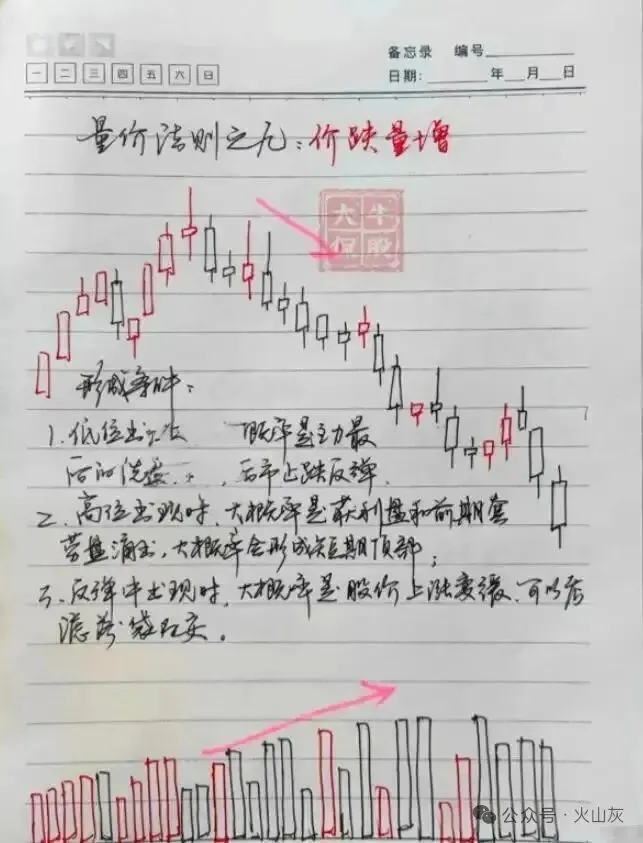 备忘录 编号
一 二 三 四 五 六 日
日期: 年 月 日
量价法则之九:价跌量增
大牛
侃股
形成条件:
1、低位出现时 概率是主力最
后的洗盘 后市止跌反弹.
2、高位出现时、大概率是获利盘和前期套
劳盘涌出,大概率会形成短期顶部;
三、反弹中出现时,大概率是股价上涨变缓、可以考
虑落袋
公众号·火山灰